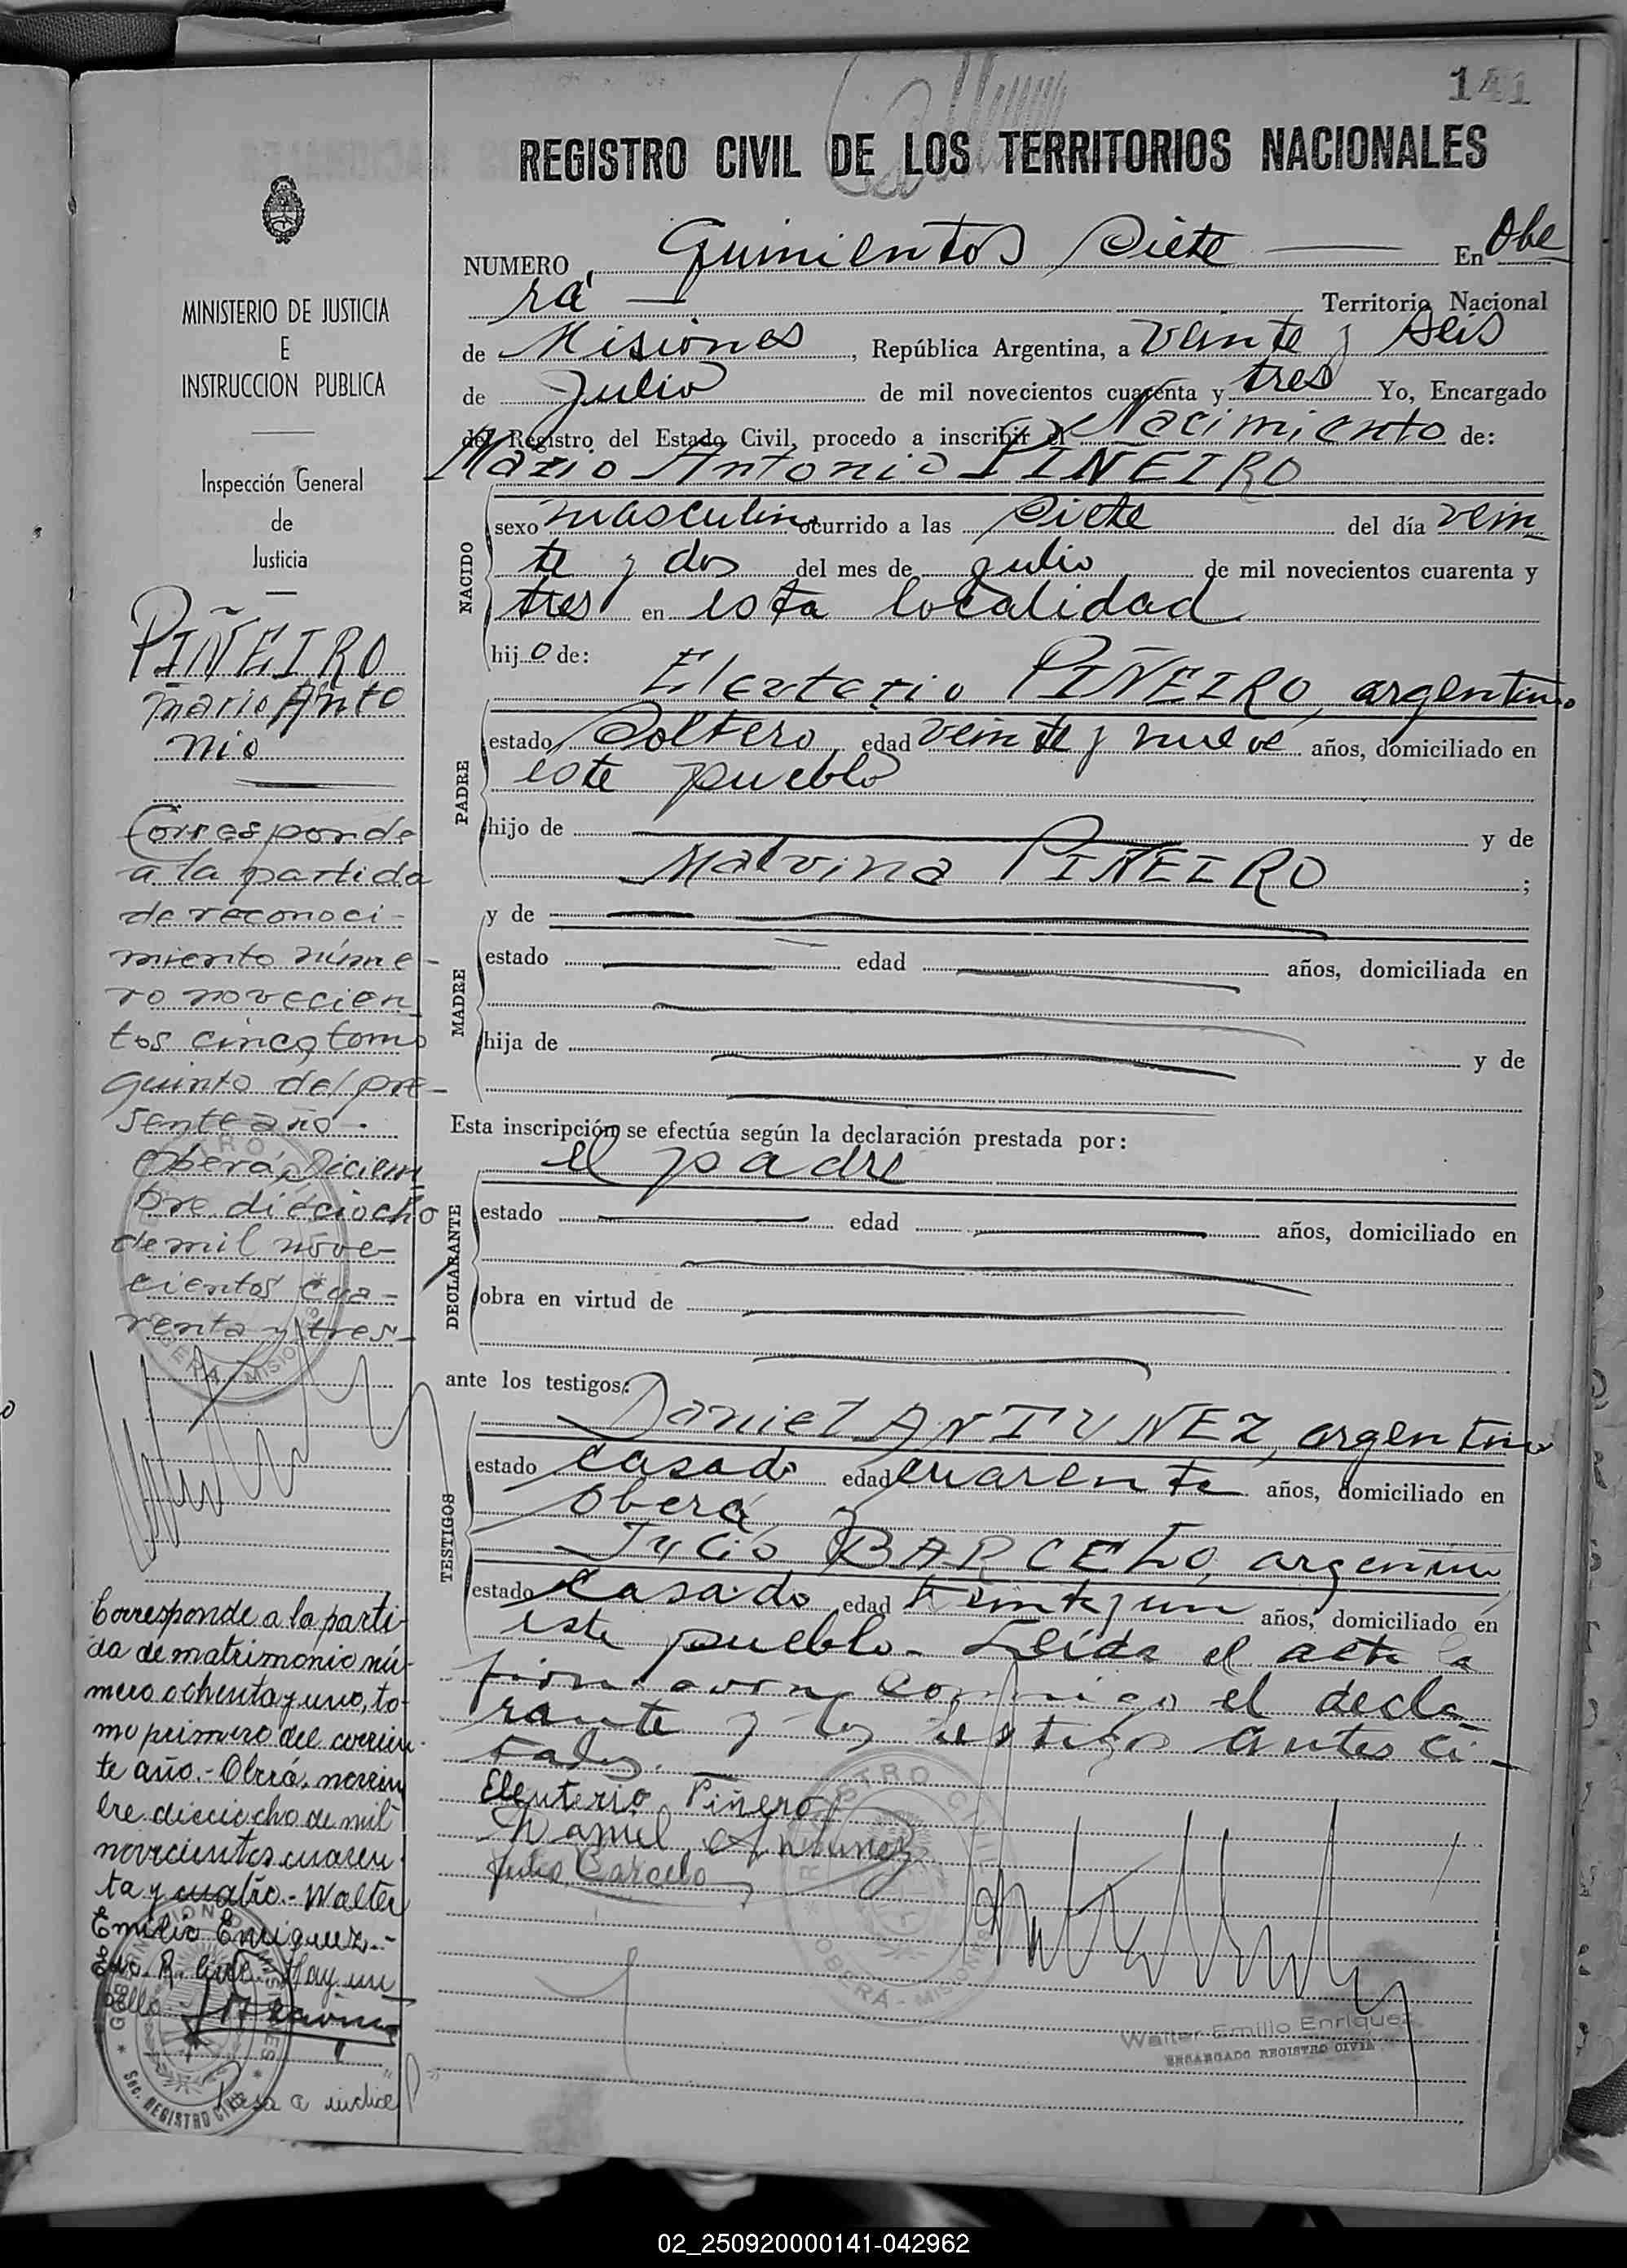 141
REGISTRO CIVIL DE LOS TERRITORIOS NACIONALES
NUMERO Quinientos Siete En Obe
rá Territorio Nacional
de Misiones, República Argentina, a veinte y seis
de Julio de mil novecientos cuarenta y tres Yo, Encargado
del Registro del Estado Civil, procedo a inscribir el Nacimiento de:
Mario Antonio PIÑEIRO
NACIDO
sexo masculino ocurrido a las Siete del día vein
te y dos del mes de julio de mil novecientos cuarenta y
tres en esta localidad
hijo de:
Eleuterio PIÑEIRO, argentino
PADRE
estado Soltero, edad veinte y nueve años, domiciliado en
este pueblo
hijo de y de
Malvina PIÑEIRO;
MADRE
y de
estado edad años, domiciliada en
hija de y de
Esta inscripción se efectúa según la declaración prestada por:
el padre
DECLARANTE
estado edad años, domiciliado en
obra en virtud de
ante los testigos:
TESTIGOS
Daniel ANTUNEZ, argentino
estado casado edad cuarenta años, domiciliado en
Oberá y
Julio BARCELO, argentino
estado casado, edad años, domiciliado en
este pueblo - Leída el acta la
conmigo el decla-
rante y los testigos antes ci-
tados.
Eleuterio Piñero
Daniel Antunez
Julio Barcelo
REGISTRO CIVIL
OBERÁ - MISIONES
Walter Emilio Enriquez
ENCARGADO REGISTRO CIVIL
MINISTERIO DE JUSTICIA
E
INSTRUCCION PUBLICA
Inspección General
de
Justicia
PIÑEIRO
Mario Anto
nio
Corresponde
a la partida
de reconoci-
miento núme-
ro novecien
tos cinco, tomo
quinto del pre-
sente año.
Oberá, Diciem
bre dieciocho
de mil nove-
cientos cua-
renta y tres-
Corresponde a la parti-
da de matrimonio nú-
mero ochenta y uno, to-
mo primero del corrien-
te año.- Oberá, noviem
bre dieciocho de mil
novecientos cuaren-
ta y cuatro.- Walter
Emilio Enriquez.-
Enc. R. Civil. Hay un
sello.
GOBERNACION DE MISIONES
Sec. REGISTRO CIVIL
Pasa a indice
02_250920000141-042962